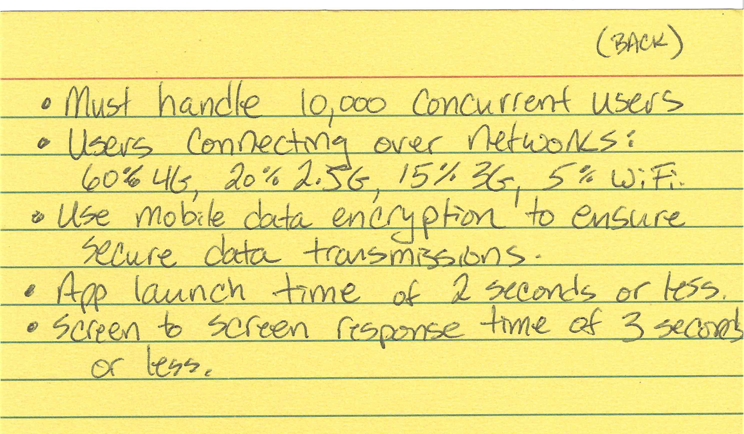 (BACK)
• Must handle 10,000 concurrent users
• Users connecting over networks:
60% 4G, 20% 2.5G, 15% 3G, 5% WiFi.
• Use mobile data encryption to ensure
secure data transmissions.
• App launch time of 2 seconds or less.
• Screen to screen response time of 3 seconds
or less.